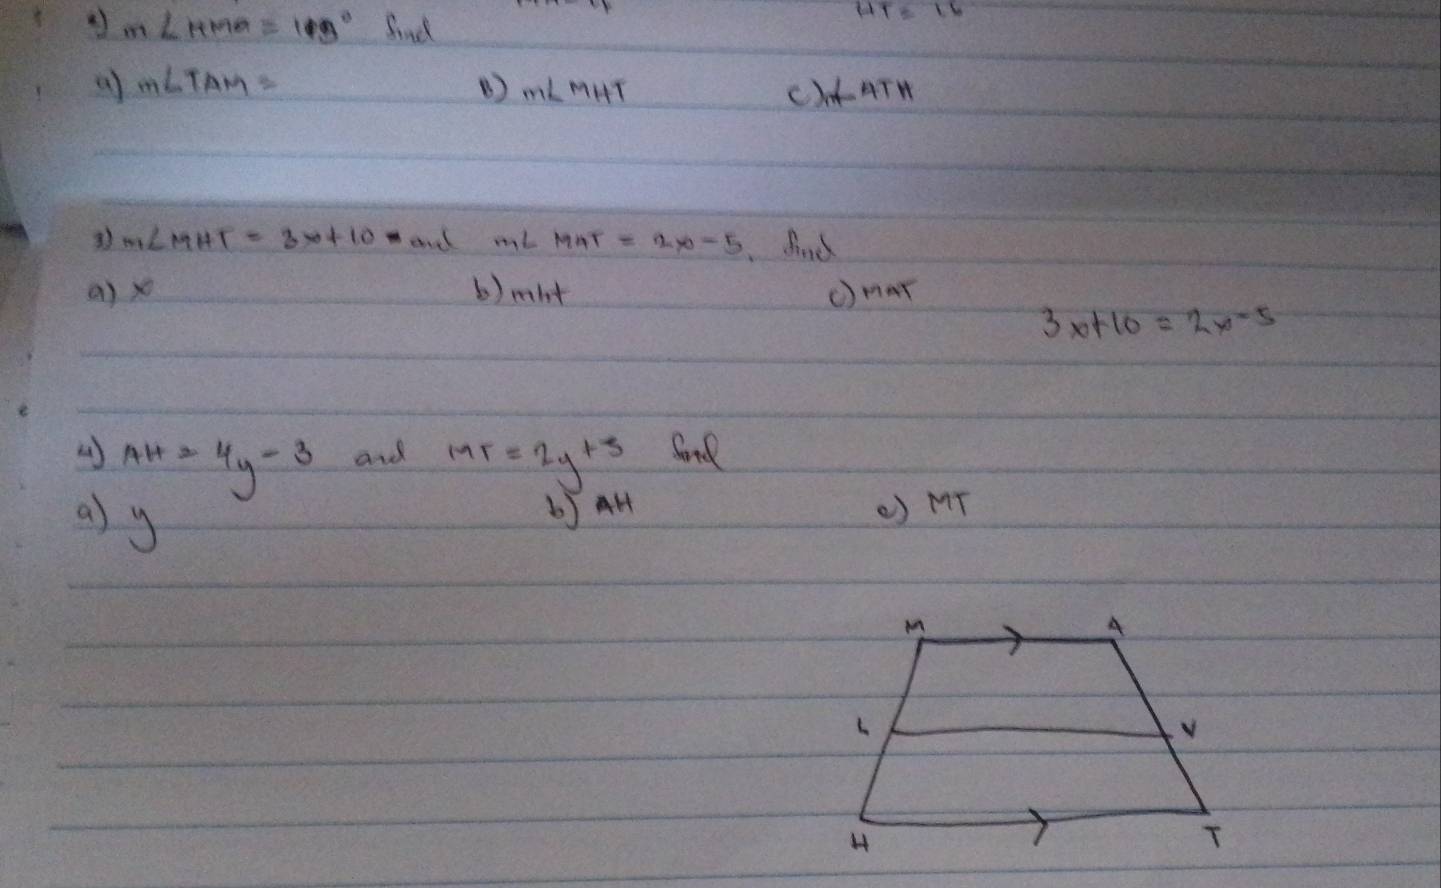 HT = 16
2) m∠HMA = 109° find
a) m∠TAM =   B) m∠MHT   c) m∠ATH
3) m∠MHT = 3x+10 and m∠ MAT = 2x-5, find
a) x   b) mht   c) MAT
3x+10 = 2x-5
4) AH = 4y-3 and MT = 2y+3 find
a) y   b) AH   c) MT
M   A
L   V
H   T